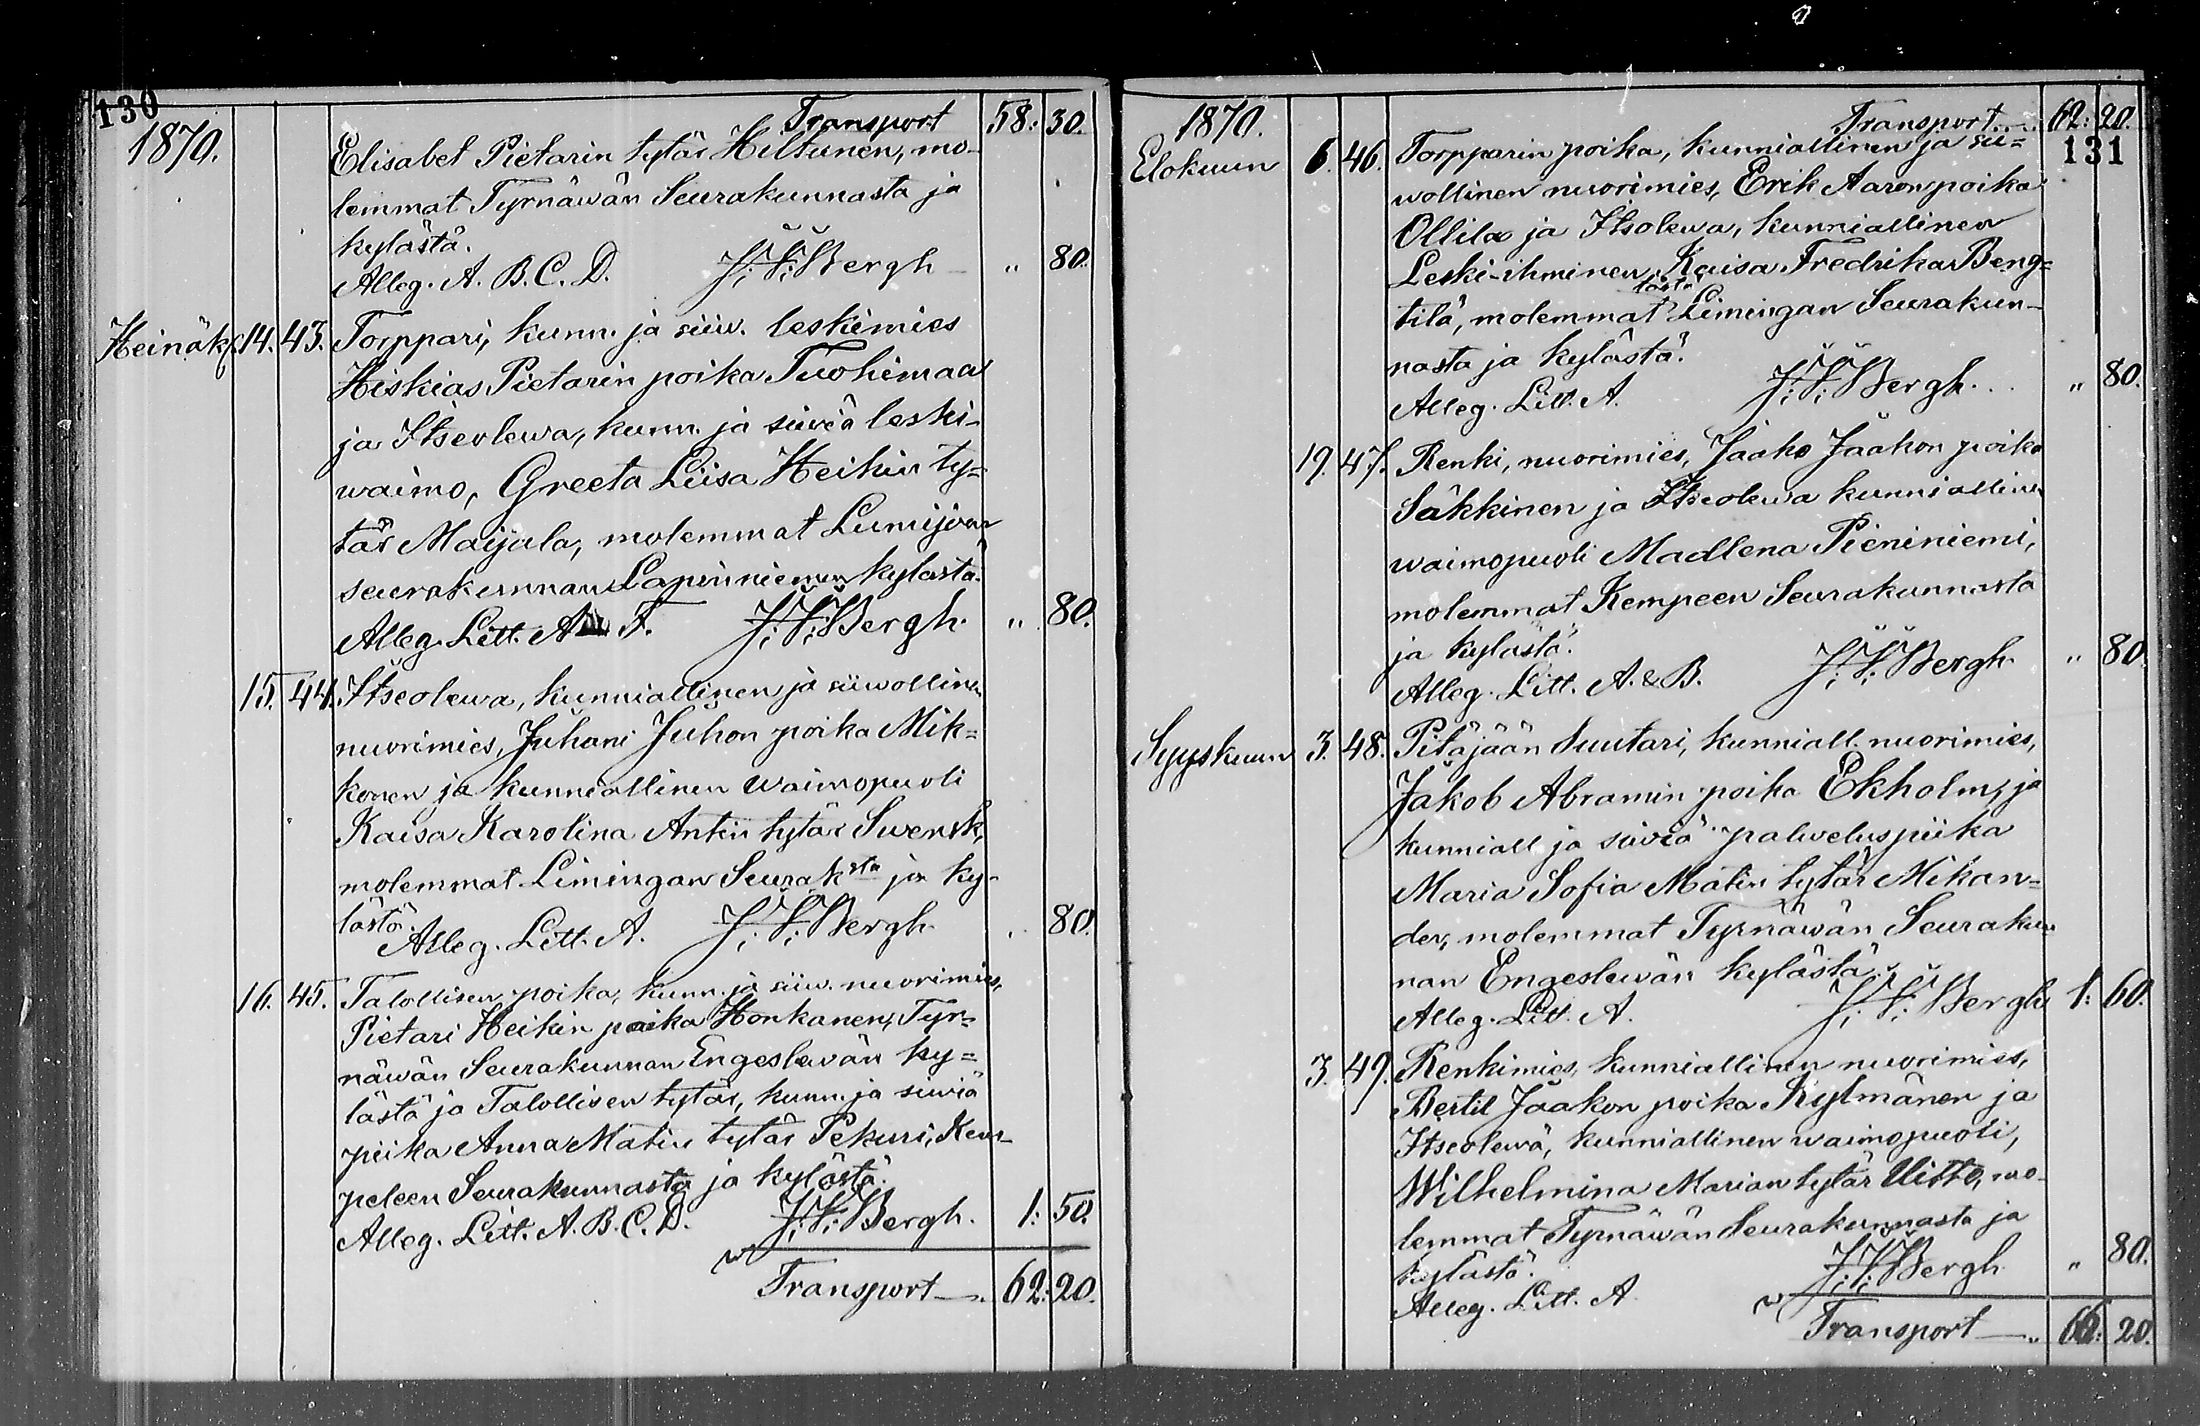 130
1870.
Transport 58: 30.
Elisabet Pietarin tytär Hiltunen, mo-
lemmat Tyrnäwän Seurakunnasta ja
kylästä.
Alleg. A. B. C. D. J. F. Bergh „ 80.
Heinäk. 14. 43. Torppari, kunn. ja siiw. leskimies
Hiskias Pietarin poika Tuohimaa
ja Itseolewa, kunn. ja siiviä leski-
waimo, Greeta Liisa Heikin ty=
tär Maijala, molemmat Lumijoen
seurakunnan Lapinniemen kylästä.
Alleg. Litt. A F. J. F. Bergh. „ 80.
15. 44. Itseolewa, kunniallinen ja siiwollinen
nuorimies, Juhani Juhon poika Mik=
konen ja kunniallinen waimopuoli
Kaisa Karolina Antin tytär Swensk,
molemmat Limingan Seurak sta ja ky-
lästä.
Alleg. Litt. A. J. F. Bergh. „ 80.
16. 45. Talollisen poika, kunn. ja siiw. nuorimies,
Pietari Heikin poika Honkanen, Tyr=
näwän Seurakunnan Engeslewän ky=
lästä ja Talollisen tytär, kunn. ja siiwiä
piika Anna Matin tytär Pekuri, Kem-
peleen Seurakunnasta ja kylästä.
Alleg. Litt. A. B. C. D. J. F. Bergh. 1: 50.
Transport 62: 20.
1870.
Transport 62: 20.
131
Elokuun 6. 46. Torpparin poika, kunniallinen ja sii=
wollinen nuorimies, Erik Aaron poika
Ollila ja Itsolewa, kunniallinen
Leski-ihminen, Kaisa Fredrika Beng=
tilä, molemmat Limingan Seurakun-
nasta ja kylästä.
Alleg. Litt. A. J. F. Bergh. „ 80.
19. 47. Renki, nuorimies, Jaako Jaakon poika
Säkkinen ja Itseolewa kunniallinen
waimopuoli Madlena Pieniniemi,
molemmat Kempeen Seurakunnasta
ja kylästä.
Alleg. Litt. A. & B. J. F. Bergh. „ 80.
Syyskuun 3. 48. Pitäjään Suutari, kunniall. nuorimies,
Jakob Abramin poika Ekholm, ja
kunniall ja siiviä palweluspiika
Maria Sofia Matin tytär Mikan=
der, molemmat Tyrnäwän Seurakun
nan Engeslewän kylästä.
Alleg. Litt. A. J. F. Bergh 1: 60.
3. 49. Renkimies, kunniallinen nuorimies,
Bertil Jaakon poika Kylmänen ja
Itseolewä, kunniallinen waimopuoli,
Wilhelmina Marian tytär Uitto, mo-
lemmat Tyrnäwän Seurakunnasta ja
kylästä.
Alleg. Litt. A. J. F. Bergh „ 80.
Transport 66: 20.